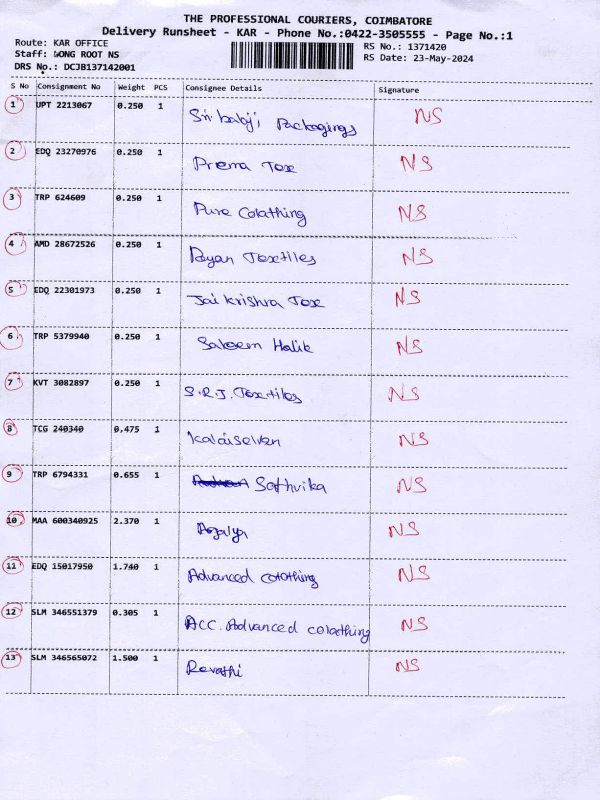 THE PROFESSIONAL COURIERS, COIMBATORE
Delivery Runsheet - KAR - Phone No.:0422-3505555 - Page No.:1
Route: KAR OFFICE
RS No.: 1371420
Staff: LONG ROOT NS
RS Date: 23-May-2024
DRS No.: DCJB137142001
S No Consignment No Weight PCS Consignee Details Signature
1 UPT 2213067 0.250 1 Sri babji Packagings NS
2 EDQ 23270976 0.250 1 Prema Tex NS
3 TRP 624609 0.250 1 Pure Colathing NS
4 AMD 28672526 0.250 1 Textiles NS
5 EDQ 22301973 0.250 1 Jai Krishna Tex NS
6 TRP 5379940 0.250 1 Saleem Malik NS
7 KVT 3082897 0.250 1 S.R.J. Textiles NS
8 TCG 240340 0.475 1 Kalaiselvan NS
9 TRP 6794331 0.655 1 Sathvika NS
10 MAA 600340925 2.370 1 NS
11 EDQ 15017950 1.740 1 Advanced colothing NS
12 SLM 346551379 0.305 1 ACC. Advanced colathing NS
13 SLM 346565072 1.500 1 Revathi NS